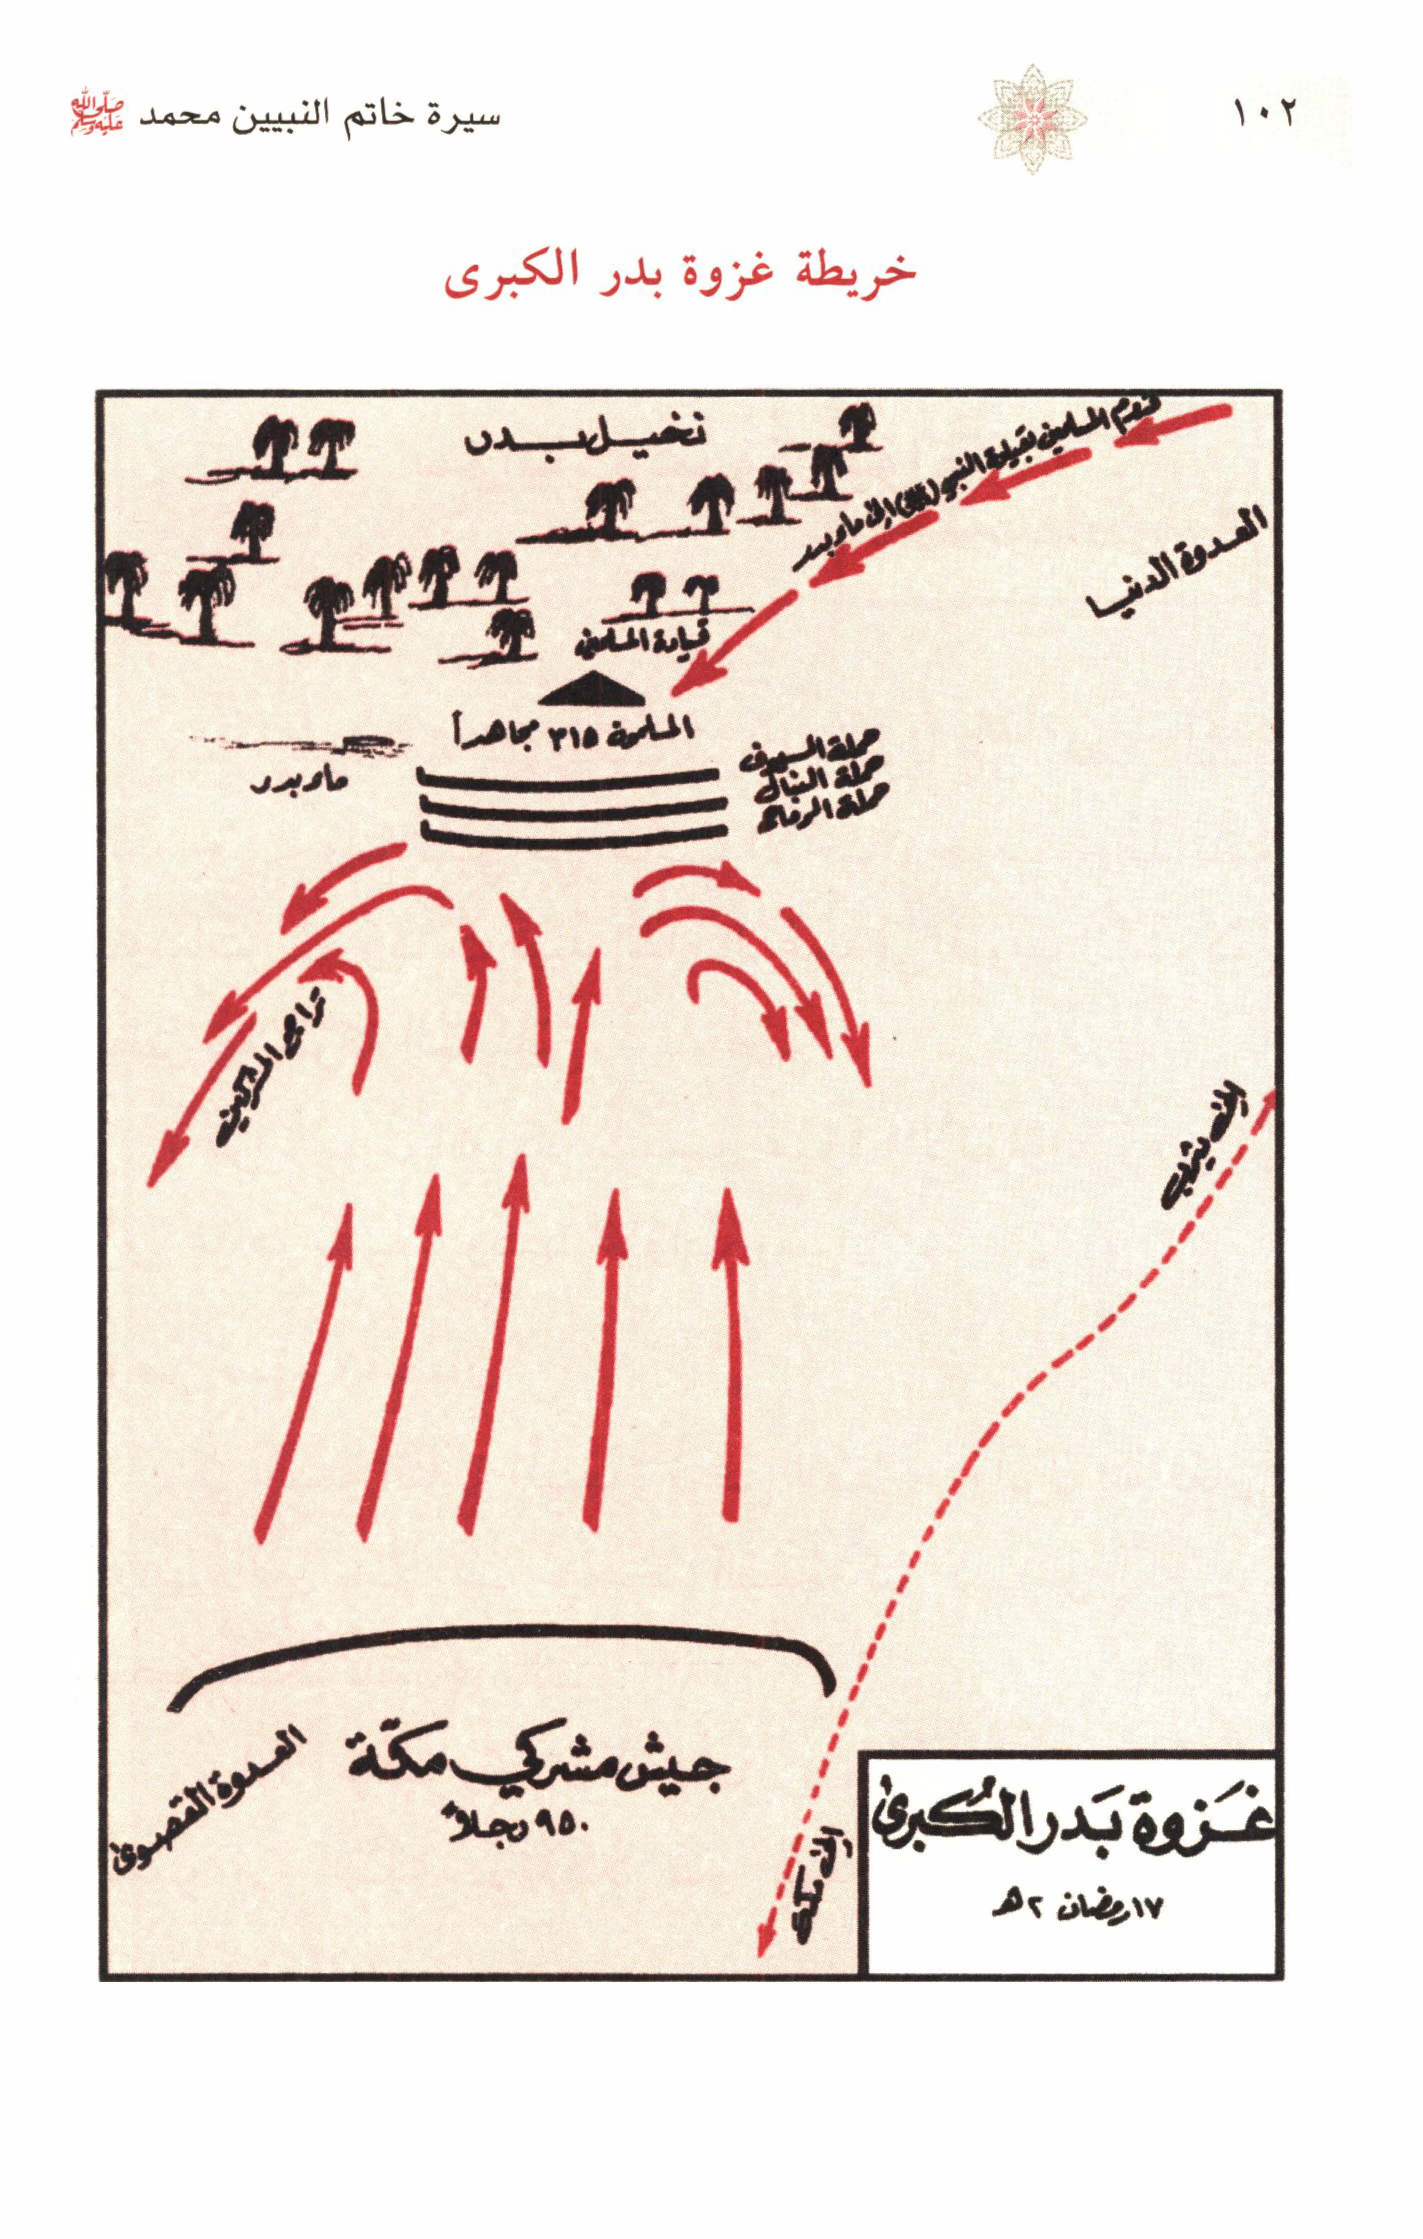 ١٠٢
سيرة خاتم النبيين محمد ﷺ
خريطة غزوة بدر الكبرى
نخيل بدر
قدوم المسلمين بقيادة النبي (ﷺ) إلى ماء بدر
العدوة الدنيا
قيادة المسلمين
المسلمون ٣١٥ مجاهداً
حملة السيوف
حملة النبال
حملة الرماح
ماء بدر
تراجع المشركين
إلى يثرب
جيش مشركي مكة
٩٥٠ رجلاً
العدوة القصوى
إلى مكة
غَزوة بَدر الكُبرى
١٧ رمضان ٢ هـ